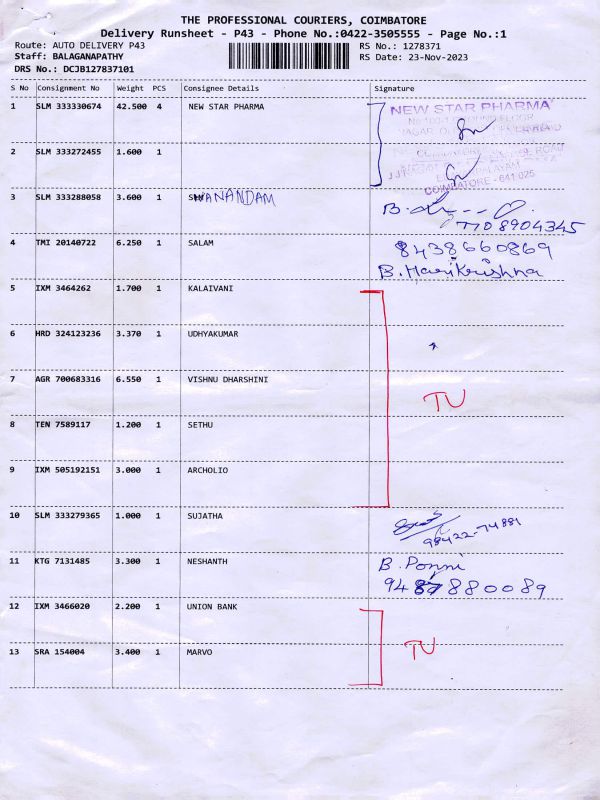 THE PROFESSIONAL COURIERS, COIMBATORE
Delivery Runsheet - P43 - Phone No.:0422-3505555 - Page No.:1
Route: AUTO DELIVERY P43 RS No.: 1278371
Staff: BALAGANAPATHY RS Date: 23-Nov-2023
DRS No.: DCJB127837101
S No Consignment No Weight PCS Consignee Details Signature
1 SLM 333330674 42.500 4 NEW STAR PHARMA NEW STAR PHARMA
2 SLM 333272455 1.600 1
COIMBATORE - 641 025
3 SLM 333288058 3.600 1
7708904345
4 TMI 20140722 6.250 1 SALAM 8438660869
B. Harikrishna
5 IXM 3464262 1.700 1 KALAIVANI
6 HRD 324123236 3.370 1 UDHYAKUMAR
7 AGR 700683316 6.550 1 VISHNU DHARSHINI TU
8 TEN 7589117 1.200 1 SETHU
9 IXM 505192151 3.000 1 ARCHOLIO
10 SLM 333279365 1.000 1 SUJATHA
98422-74881
11 KTG 7131485 3.300 1 NESHANTH B. Ponni
9487880089
12 IXM 3466020 2.200 1 UNION BANK
13 SRA 154004 3.400 1 MARVO TU